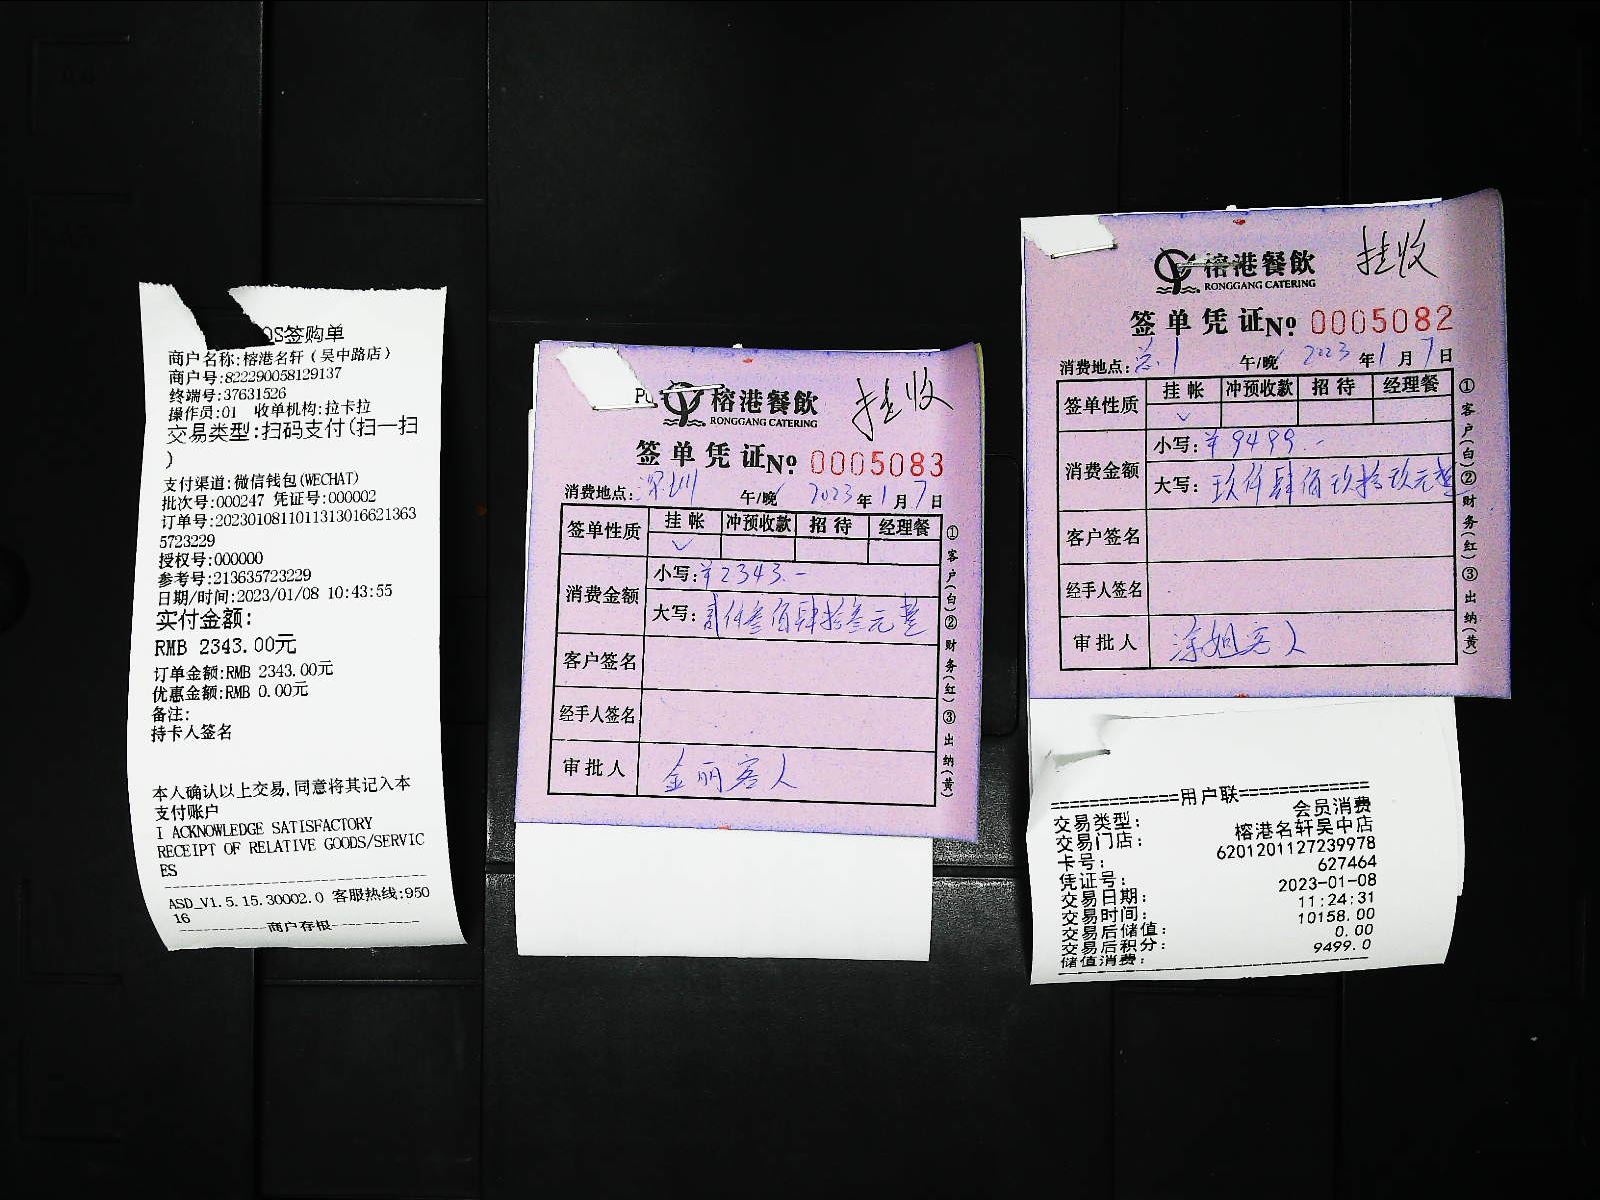 OS签购单
商户名称:榕港名轩（吴中路店）
商户号:822290058129137
终端号:37631526
操作员:01 收单机构:拉卡拉
交易类型:扫码支付(扫一扫
)
支付渠道:微信钱包(WECHAT)
批次号:000247 凭证号:000002
订单号:20230108110113130166213635723229
授权号:000000
参考号:213635723229
日期/时间:2023/01/08 10:43:55
实付金额:
RMB 2343.00元
订单金额:RMB 2343.00元
优惠金额:RMB 0.00元
备注:
持卡人签名
本人确认以上交易,同意将其记入本
支付账户
I ACKNOWLEDGE SATISFACTORY
RECEIPT OF RELATIVE GOODS/SERVIC
ES
ASD_V1.5.15.30002.0 客服热线:950
16
商户存根
榕港餐飲
RONGGANG CATERING
挂收
签单凭证№ 0005083
消费地点:深圳 午/晚 2023年1月7日
签单性质 挂帐 冲预收款 招待 经理餐
消费金额 小写:¥2343.-
大写:贰仟叁佰肆拾叁元整
客户签名
经手人签名
审批人 金丽客人
①客户(白)②财务(红)③出纳(黄)
榕港餐飲
RONGGANG CATERING
挂收
签单凭证№ 0005082
消费地点: 午/晚 2023年1月7日
签单性质 挂帐 冲预收款 招待 经理餐
消费金额 小写:¥9499.-
大写:玖仟肆佰玖拾玖元整
客户签名
经手人签名
审批人 涂姐客人
①客户(白)②财务(红)③出纳(黄)
============用户联============
交易类型: 会员消费
交易门店: 榕港名轩吴中店
卡号: 6201201127239978
凭证号: 627464
交易日期: 2023-01-08
交易时间: 11:24:31
交易后储值: 10158.00
交易后积分: 0.00
储值消费: 9499.0